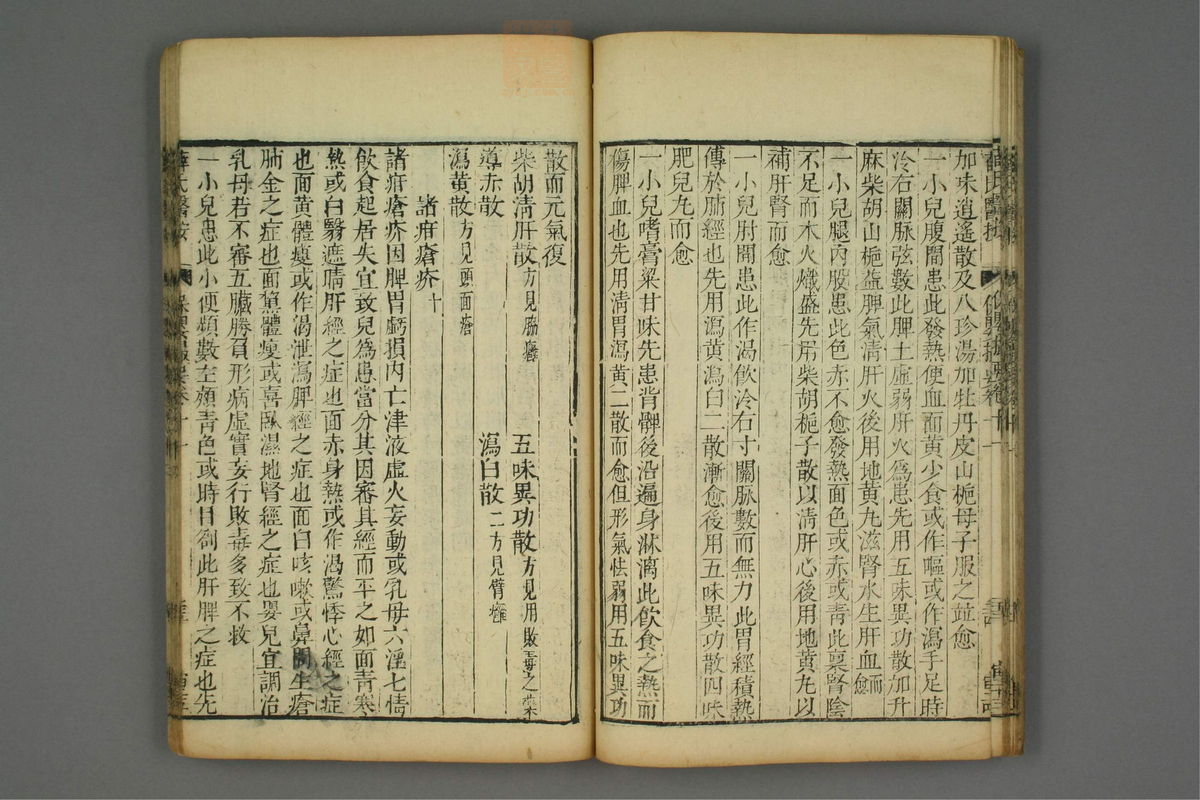 加味逍遙散及八珍湯加牡丹皮山梔母子服之竝愈
一小兒腹間患此發熱便血面黃少食或作嘔或作瀉手足時
冷右關脉弦數此脾土虛弱肝火爲患先用五味異功散加升
麻柴胡山梔益脾氣清肝火後用地黃九滋腎水生肝血而愈
一小兒腿內股患此色赤不愈發熱面色或赤或青此稟腎陰
不足而木火熾盛先用柴胡梔子散以清肝心後用地黃九以
補肝腎而愈
一小兒肘間患此作渴飲冷右寸關脉數而無力此胃經積熱
傳於肺經也先用瀉黃瀉白二散漸愈後用五味異功散四味
肥兒九而愈
一小兒嗜膏粱甘味先患背髀後沿遍身淋漓此飲食之熱而
傷脾血也先用清胃瀉黃二散而愈但形氣怯弱用五味異功
散而元氣復
柴胡清肝散方見腦癰 五味異功散方見用敗毒之藥
導赤散 瀉白散二方見臂癰
瀉黃散方見頭面瘡
諸疳瘡疥十
諸疳瘡疥因脾胃虧損內亡津液虛火妄動或乳母六淫七情
飲食起居失宜致兒爲患當分其因審其經而平之如面青寒
熱或白翳遮睛肝經之症也面赤身熱或作渴驚悸心經之症
也面黃體瘦或作渴泄瀉脾經之症也面白咳嗽或鼻間生瘡
肺金之症也面黧體瘦或喜臥濕地腎經之症也嬰兒宜調治
乳母若不審五臟勝負形病虛實妄行敗毒多致不救
一小兒患此小便頻數左頰青色或時目劄此肝脾之症也先
薛氏醫按